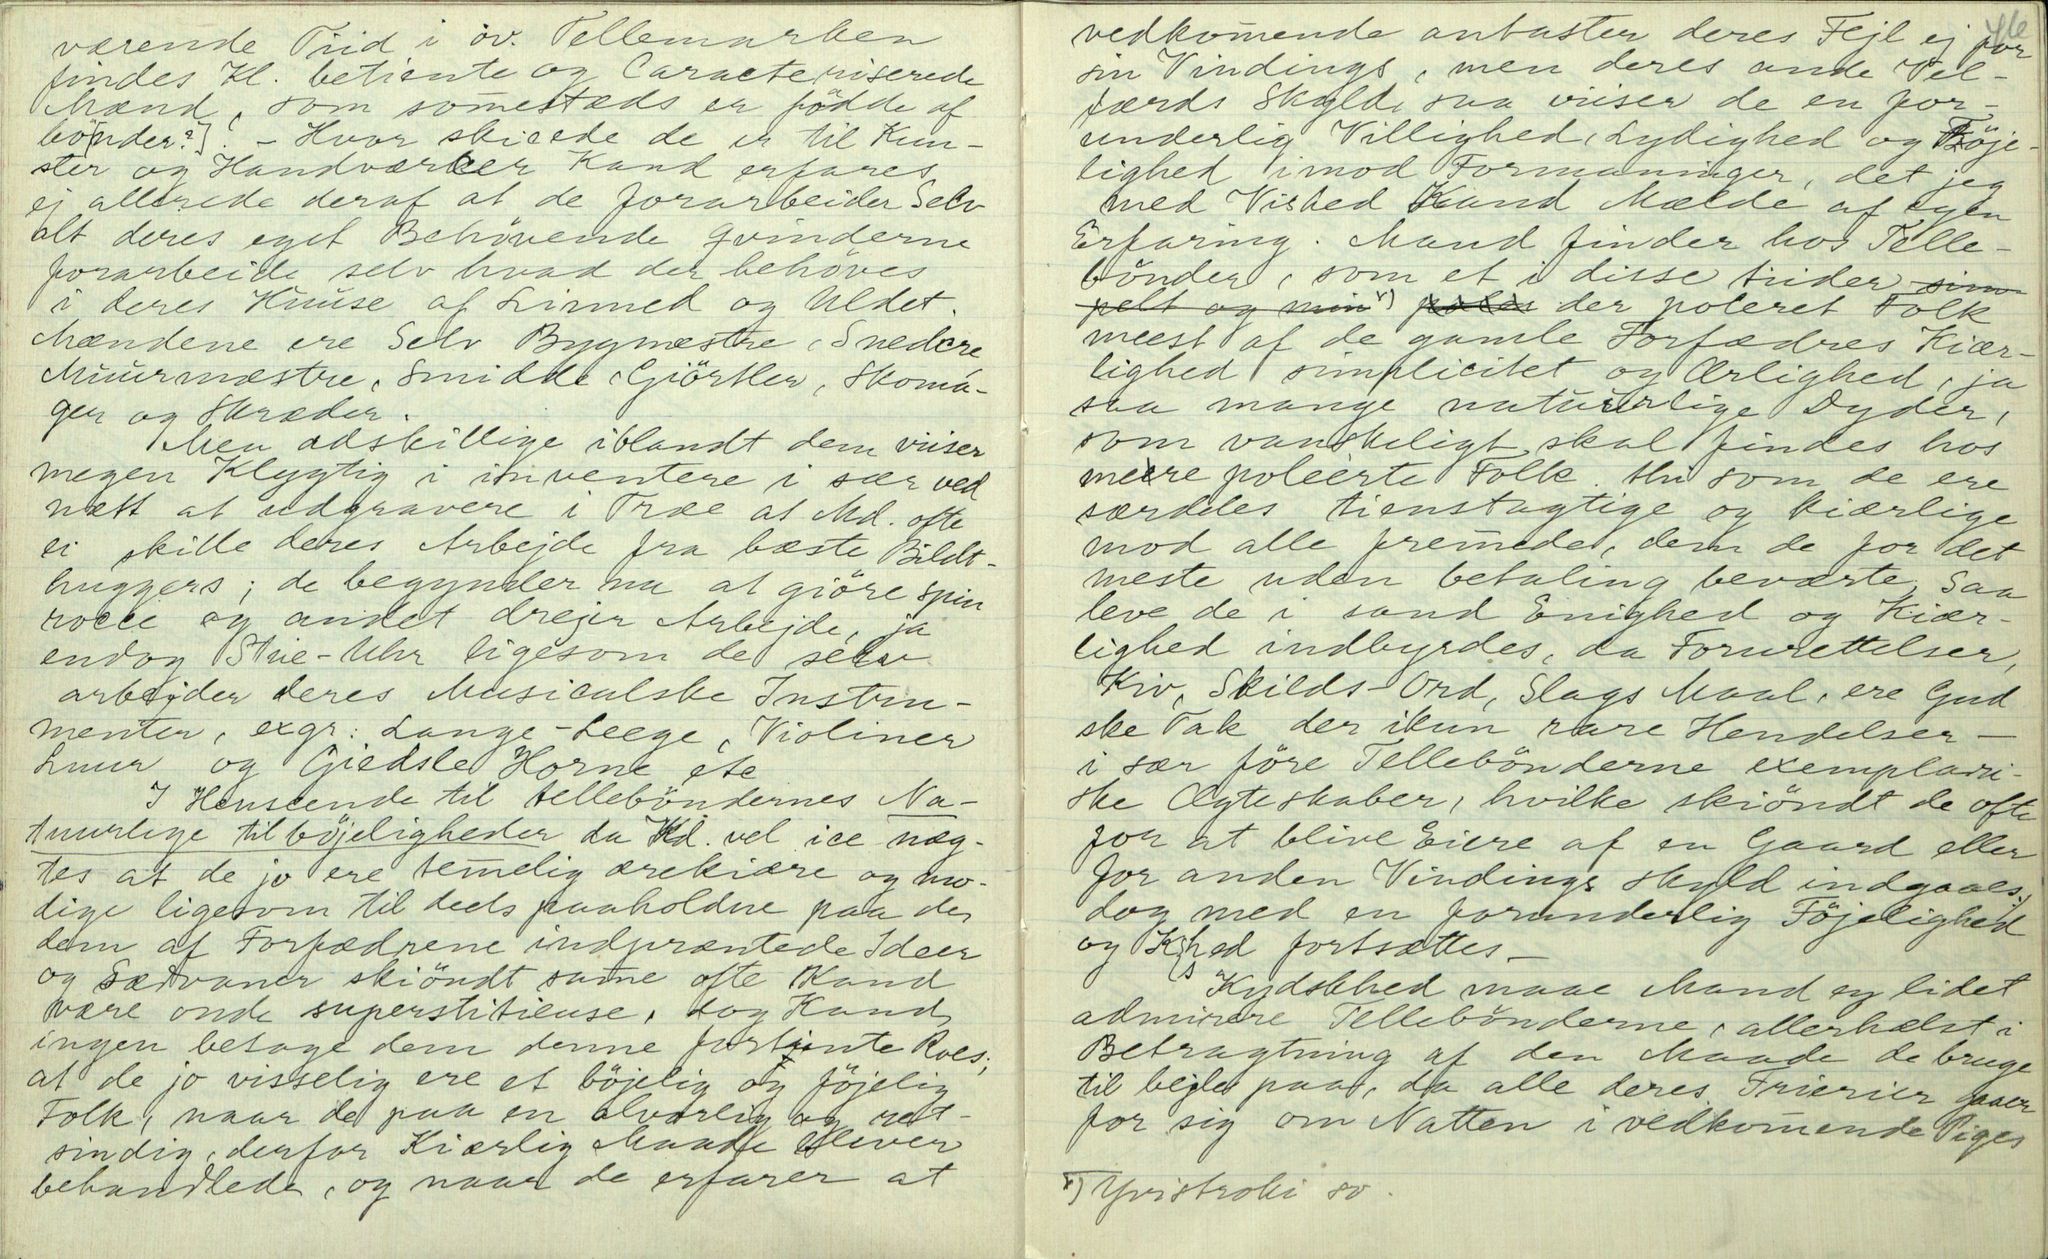 værende Tiid i öv. Tellemarken
findes Kl. betiente og Caracteriserede
Mænd, som somestæds er födde af
bö[nder?]. – Hvor skicede de er til Kun-
ster og Handværcer Kand erfares
ej allerede deraf at de forarbeider Selv
alt deres eget Behövende Qvinderne
forarbeide selv hvad der behöves
i deres Huuse af Linned og Uldet.
Mændene ere Selv Bygmestre, Snedcre
Muurmæstre, Smidde, Giörtler, Skoma-
ger og Skræder.
Men adskillige iblandt dem viiser
megen Klygtig i inventere i sær ved
nætt at udgravere i Træe at Md. ofte
ei skille deres Arbejde fra bæste Bildt-
huggers; de begynder nu at giöre spin
rocce og andet drejer Arbejde, ja
endog Stue-Uhr ligesom de selv
arbejder deres Musicalske Instru-
menter, exgr: Lange-Leege, Violiner
Luur og Giedske Horne etc
I Henseende til telleböndernes Na-
tuurlige tilböjeligheder da Kd. vel ice næg-
tes at de jo ere temelig ærekiære og mo-
dige ligesom til deels paaholdne paa de
dem af Forfædrene indpræntede Ideer
og Sædvaner skiöndt same ofte Kand
være onde superstitieuse, dog Kand
ingen betage dem denne fortiente Roes;
at de jo visselig ere et böjelig og föjelig
Folk, naar de paa en alvorlig og ret-
sindig, derfor Kiærlig Maade bliver
behandlede, og naar de erfarer at
vedkomende antaster deres Fejl ej for
sin Vindings, men deres ande Vel-
færds Skyld, saa viiser de en for-
underlig Villighed, Lydighed og Föje-
lighed imod Formaninger, det jeg
med Vished Kand Mælde af egen
Erfaring. Mand finder hos Telle-
bönder, som et i disse tiider sim-
pelt og min x) der poleret Folk
meest af de gamle Forfædres Kiær-
lighed simplicitet og Ærlighed, ja
saa mange natuurlige Dyder,
som vanskeligt skal findes hos
meere poleerte Folk. thi som de ere
særdeles tienstagtige og kiærlige
mod alle fremede, dem de for det
meste uden betaling beværte, Saa
leve de i sand Enighed og Kiær-
lighed indbyrdes, da Forurettelser,
Kiv, Skilds-Ord, Slags Maal, ere Gud
ske Tak der ikun rare Hendelser –
i sær före Tellebönderne exemplari-
ske Ægteskaber, hvilke skiöndt de ofte
for at blive Eiere af en Gaard eller
for anden Vindings skyld indgaaes,
dog med en forunderlig Föjelighed
og Kshed fortsættes –
Kydskhed maae Mand ey lidet
admirere Tellebönderne, allerhælst i
Betragtning af den Maade de bruge
til bejle paa, da alle deres Frierier gaaer
for sig om Natten i vedkomende Piges
x) Yvistroki so.